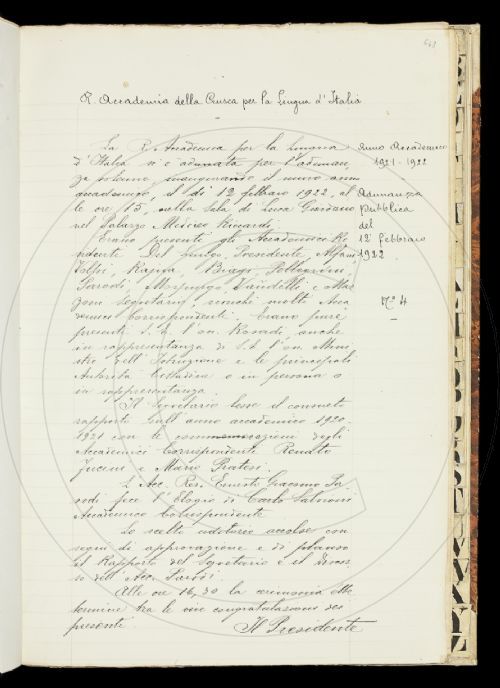 R. Accademia della Crusca per la Lingua d'Italia
La R. Accademia per la Lingua
d'Italia si è adunata per l'adunan
za solenne, inaugurando il nuovo anno
accademico, il dì 12 febbraio 1922, al
le ore 15, nella Sala di Luca Giordano
nel Palazzo Medici Riccardi.
Erano presenti gli Accademici Re
sidenti Del Lungo, Presidente,
Rajna, Biagi,
Parodi, Morpurgo, Vandelli, e Maz
zoni Segretario, nonché molti Acca
demici Corrispondenti. Erano pure
presenti S. E. l'on. Rosadi, anche
in rappresentanza di S. E. l'on. Mini
stro dell'Istruzione e le principali
Autorità Cittadine o in persona o
in rappresentanza.
Il Segretario lesse il consueto
rapporto sull'anno accademico 1920-
1921 con le commemorazioni degli
Accademici Corrispondenti Renato
e Mario Pratesi.
L'Acc. Res. Ernesto Giacomo Pa
rodi fece l'Elogio di Carlo Salvioni
Accademico Corrispondente.
Lo scelto uditorio accolse con
segni di approvazione e di plauso
il Rapporto del Segretario e il Discor
so dell'Acc. Parodi.
Alle ore 16,30 la cerimonia ebbe
termine tra le vive congratulazioni dei
presenti.
Il Presidente
Anno Accademico
1921-1922
Adunanza
pubblica
del
12 febbraio
1922
N.o 4